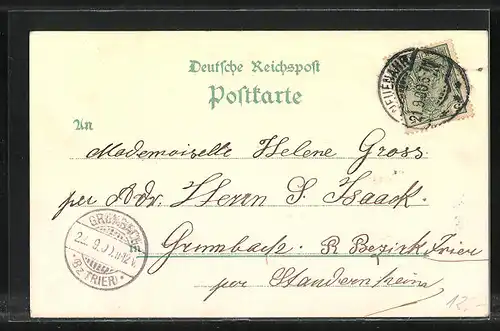 Deutsche Reichspost
Postkarte
An
Mademoiselle Helene Gross
per Adr. Herrn S. Isaack.
Grumbach. R Bezirk Trier
per Standernheim
NEUENAHR
21.9.00.5-
GRUMBACH
(BZ. TRIER)
12.-